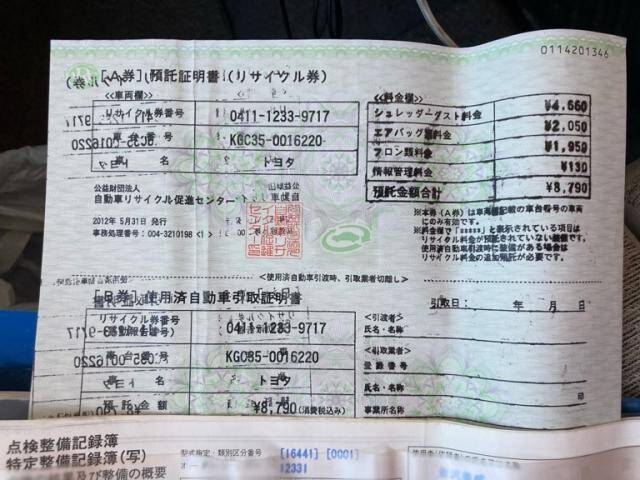 0114201346
[A券] 預託証明書 (リサイクル券)
<車両欄>
リサイクル券番号 0411-1233-9717
車台番号 KGC35-0016220
車名 トヨタ
公益財団法人
自動車リサイクル促進センター
2012年 5月31日 発行
事務処理番号: 004-3210198
<料金欄>
シュレッダーダスト料金 ¥4,660
エアバッグ類料金 ¥2,050
フロン類料金 ¥1,950
情報管理料金 ¥130
預託金額合計 ¥8,790
※本券(A券)は車両欄記載の車台番号の車両
にのみ有効です。
※料金欄で「*****」と表示されている項目は
リサイクル料金が預託されていない装備です。
使用済自動車引渡時に装備がある場合は
リサイクル料金の追加預託が必要です。
<使用済自動車引渡時、引取業者切離し>
[B券] 使用済自動車引取証明書
リサイクル券番号 0411-1233-9717
車台番号 KGC35-0016220
車名 トヨタ
預託金額 ¥8,790(消費税込み)
引取日: 年 月 日
<引渡者>
氏名・名称
<引取業者>
登録番号
氏名・名称 印
事業所名称
点検整備記録簿
特定整備記録簿(写)
型式指定・類別区分番号 [16441] [0001]
12331